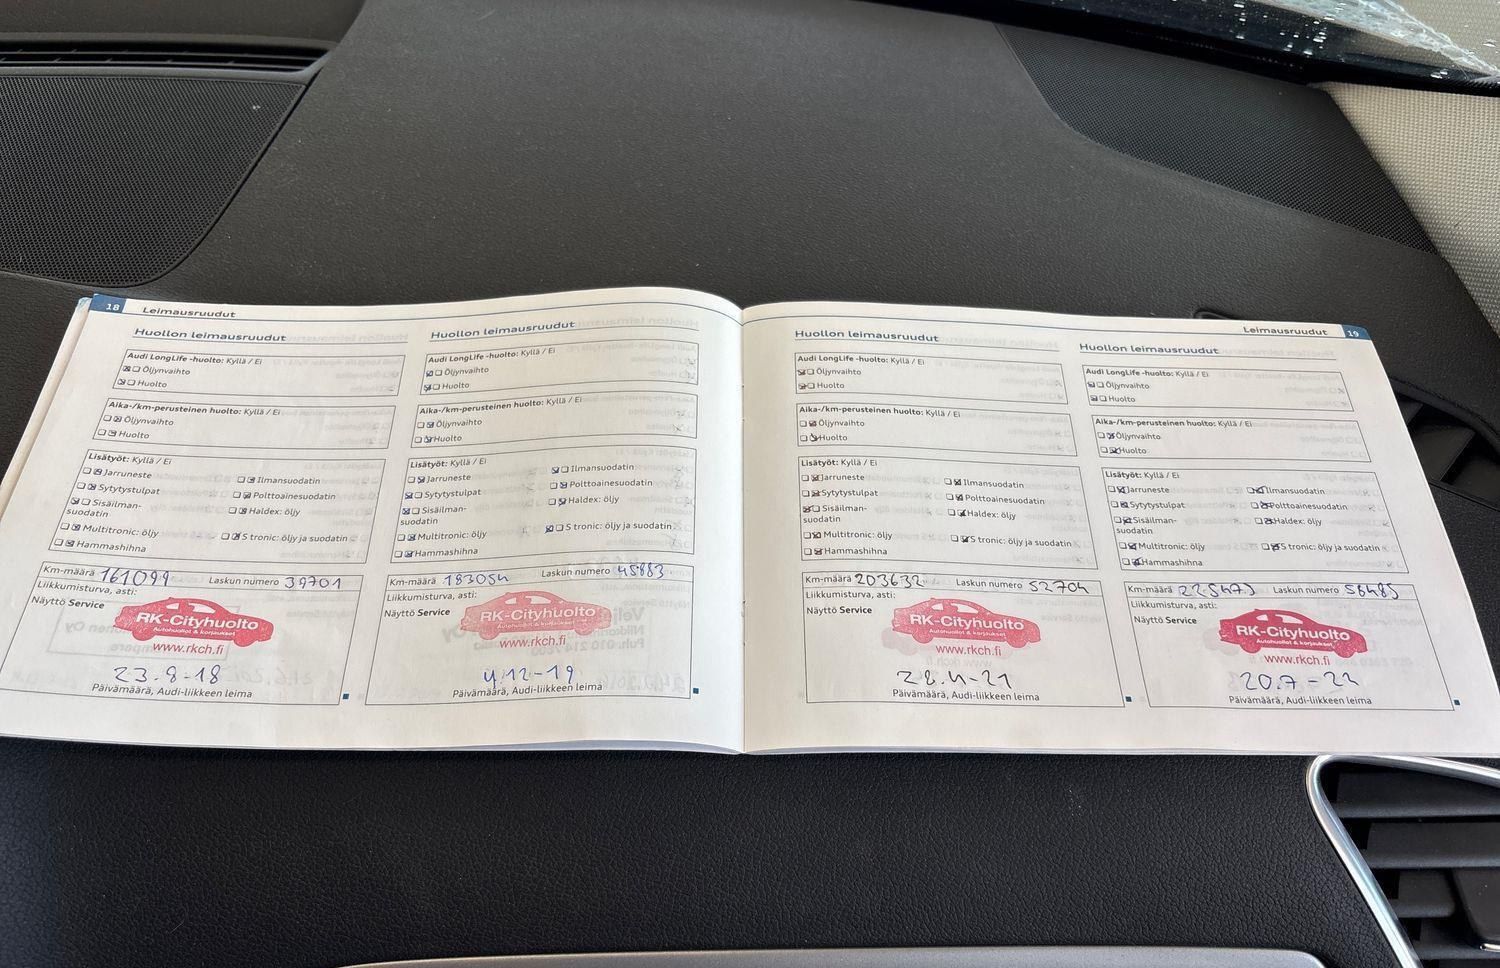 18 Leimausruudut
Huollon leimausruudut
Audi LongLife -huolto: Kyllä / Ei
Öljynvaihto
Huolto
Aika-/km-perusteinen huolto: Kyllä / Ei
Öljynvaihto
Huolto
Lisätyöt: Kyllä / Ei
Jarruneste
Ilmansuodatin
Sytytystulpat
Polttoainesuodatin
Sisäilman-
suodatin
Haldex: öljy
Multitronic: öljy
S tronic: öljy ja suodatin
Hammashihna
Km-määrä 161099 Laskun numero 39701
Liikkumisturva, asti:
Näyttö Service
RK-Cityhuolto
Autohuollot & korjaukset
www.rkch.fi
23.8-18
Päivämäärä, Audi-liikkeen leima
Huollon leimausruudut
Audi LongLife -huolto: Kyllä / Ei
Öljynvaihto
Huolto
Aika-/km-perusteinen huolto: Kyllä / Ei
Öljynvaihto
Huolto
Lisätyöt: Kyllä / Ei
Ilmansuodatin
Jarruneste
Polttoainesuodatin
Sytytystulpat
Haldex: öljy
Sisäilman-
suodatin
S tronic: öljy ja suodatin
Multitronic: öljy
Hammashihna
Km-määrä 183054 Laskun numero 45883
Liikkumisturva, asti:
Näyttö Service
RK-Cityhuolto
Autohuollot & korjaukset
www.rkch.fi
4.12-19
Päivämäärä, Audi-liikkeen leima
Leimausruudut 19
Huollon leimausruudut
Audi LongLife -huolto: Kyllä / Ei
Öljynvaihto
Huolto
Aika-/km-perusteinen huolto: Kyllä / Ei
Öljynvaihto
Huolto
Lisätyöt: Kyllä / Ei
Jarruneste
Ilmansuodatin
Sytytystulpat
Polttoainesuodatin
Sisäilman-
suodatin
Haldex: öljy
Multitronic: öljy
S tronic: öljy ja suodatin
Hammashihna
Km-määrä 203632 Laskun numero 52704
Liikkumisturva, asti:
Näyttö Service
RK-Cityhuolto
Autohuollot & korjaukset
www.rkch.fi
28.4-21
Päivämäärä, Audi-liikkeen leima
Huollon leimausruudut
Audi LongLife -huolto: Kyllä / Ei
Öljynvaihto
Huolto
Aika-/km-perusteinen huolto: Kyllä / Ei
Öljynvaihto
Huolto
Lisätyöt: Kyllä / Ei
Jarruneste
Ilmansuodatin
Sytytystulpat
Polttoainesuodatin
Sisäilman-
suodatin
Haldex: öljy
Multitronic: öljy
S tronic: öljy ja suodatin
Hammashihna
Km-määrä 225473 Laskun numero 56485
Liikkumisturva, asti:
Näyttö Service
RK-Cityhuolto
Autohuollot & korjaukset
www.rkch.fi
20.7-22
Päivämäärä, Audi-liikkeen leima